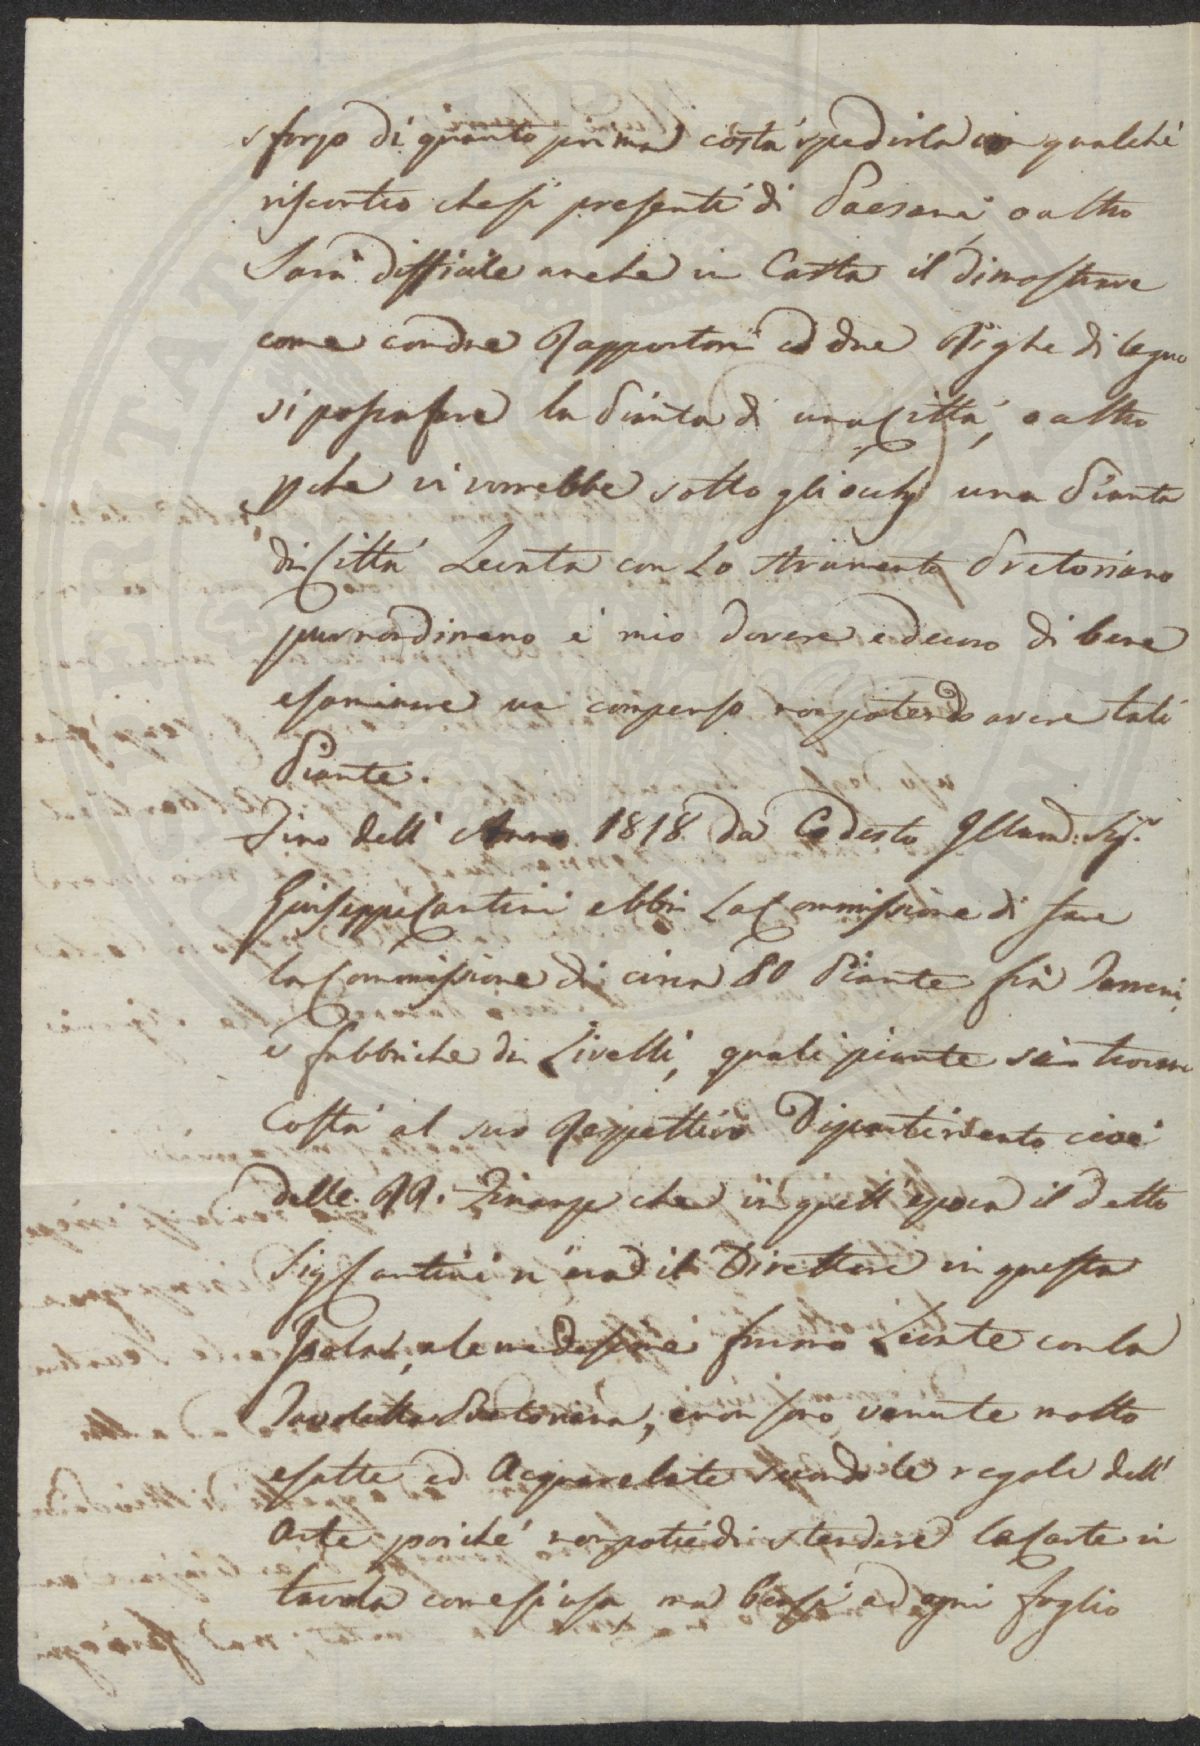 sforzo di quanto prima costà spedirla in qualche
riscontro che si presenti di Paesani, o altro
Sarà difficile anche in Carta il dimostrare
come con due Rapportori ed due Righe di legno
si possa fare la Pianta di una Città, o altro
pche vi vorrebbe sotto gli ochj una Pianta
di Città Levata con Lo strumento Pretoriano
pur nondimeno è mio dovere e decoro di bene
esaminare un compenso non potendo avere tali
Piante.
Fino dell' Anno 1818 da Codesto Illmo: Sigr.
Giuseppe Cantini ebbi La Commissione di fare
la Commissione di circa 80 Piante frà Terreni,
e fabbriche di Livelli, quali piante si trovano
Costà al suo Respettivo Dipartimento cioè
delle RR. Finanze che in quell'epoca il detto
Sig Cantini n'era il Direttore in questa
Isola, e le medesime furno Levate con la
Tavoletta Pretoriana, e non sono venute molto
esatte ed Acquarelate secondo le regole dell'
Arte poiché non potiedi stendere la Carte in
tavola come si usa, ma bensì ad ogni foglio